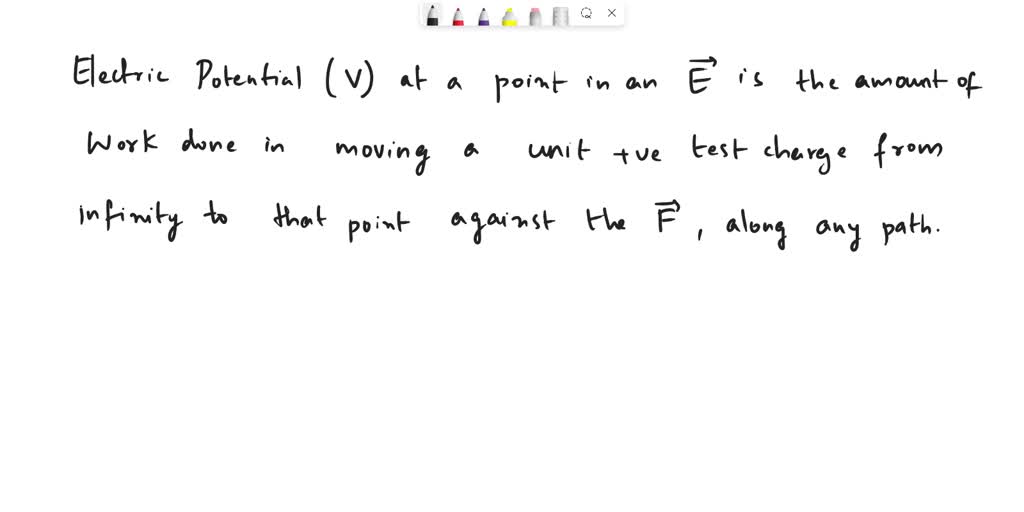 Electric Potential (V) at a point in an E⃗ is the amount of
Work done in moving a unit +ve test charge from
infinity to that point against the F⃗, along any path.